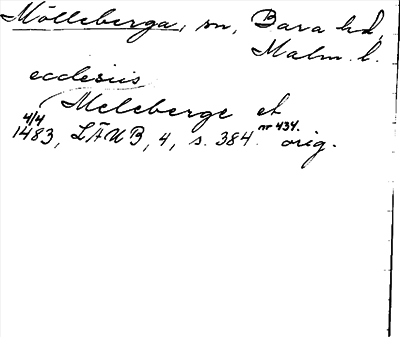 Mölleberga, sn, Bara hd,
Malm. l.
ecclesiis
Meleberge et
4/4
1483, LÄUB, 4, s. 384. nr 434. orig.